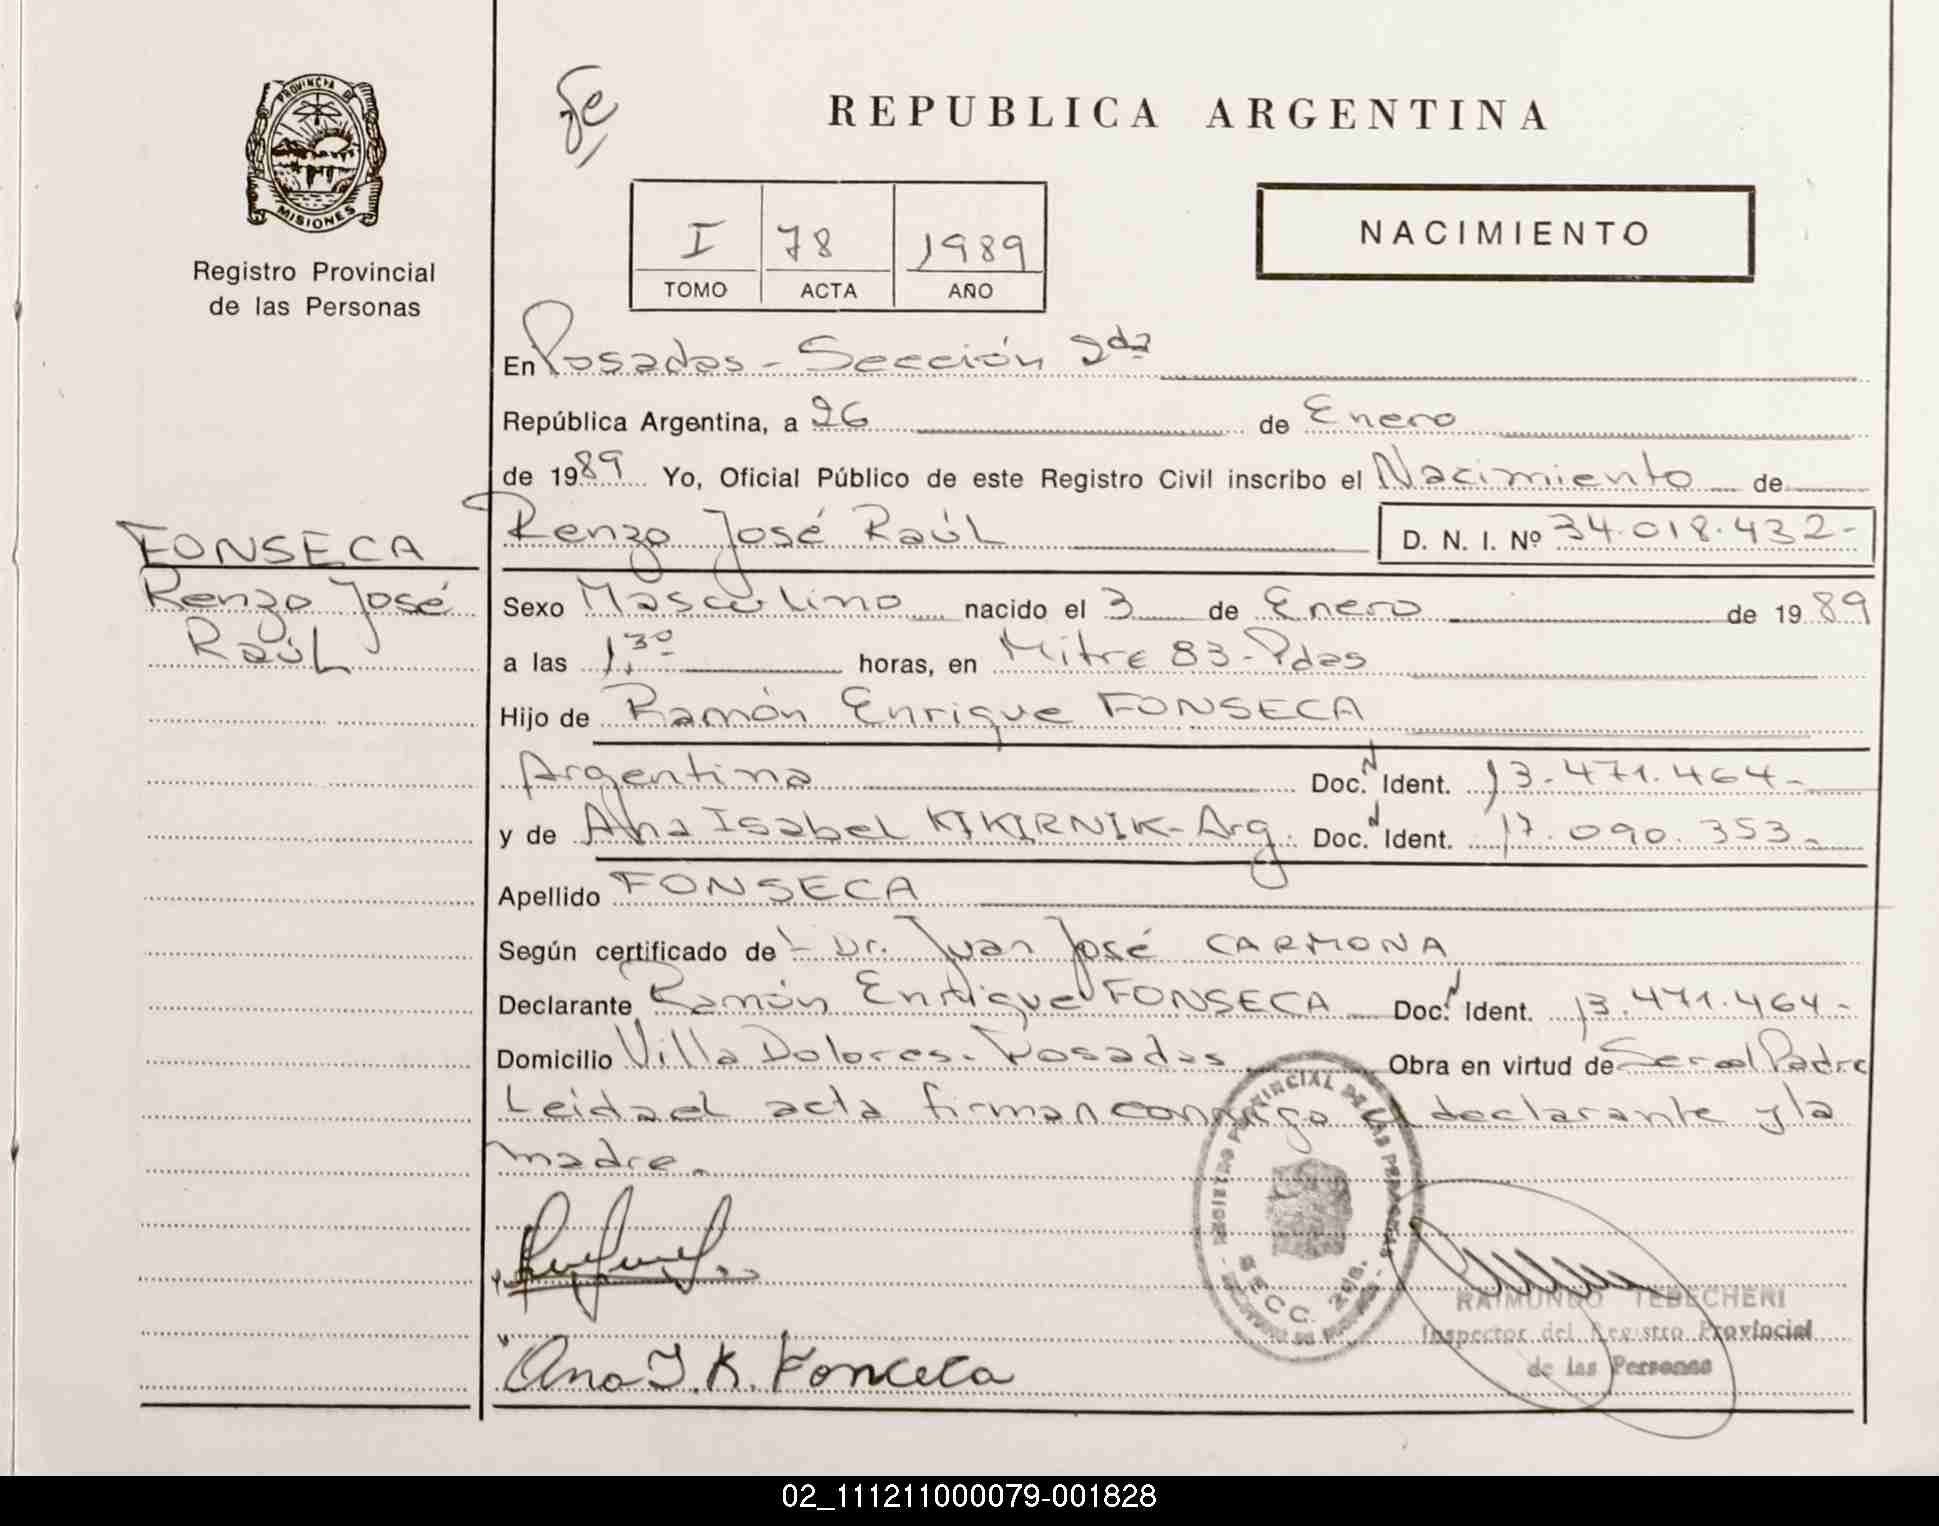 PROVINCIA DE
MISIONES
Registro Provincial
de las Personas
FONSECA
Renzo José
Raúl
REPUBLICA ARGENTINA
I 78 1989
TOMO ACTA AÑO
NACIMIENTO
En Posadas - Sección 2da
República Argentina, a 26 de Enero
de 1989 Yo, Oficial Público de este Registro Civil inscribo el Nacimiento de
Renzo José Raúl D. N. I. Nº 34.018.432-
Sexo Masculino nacido el 3 de Enero de 1989
a las 1,30 horas, en Mitre 83 - Pdas
Hijo de Ramón Enrique FONSECA
Argentina Doc. N Ident. 13.471.464-
y de Ana Isabel KIKIRNIK - Arg. Doc. N Ident. 17.090.353-
Apellido FONSECA
Según certificado de Dr. Juan José CARMONA
Declarante Ramón Enrique FONSECA Doc. N Ident. 13.471.464-
Domicilio Villa Dolores - Posadas Obra en virtud de Ser el Padre
Leida el acta firman conmigo el declarante y la
madre.
REGISTRO PROVINCIAL DE LAS PERSONAS
SECC. 2da.
RAIMUNDO TEBECHERI
Inspector del Registro Provincial
de las Personas
Ana I. K. Fonceca
02_111211000079-001828